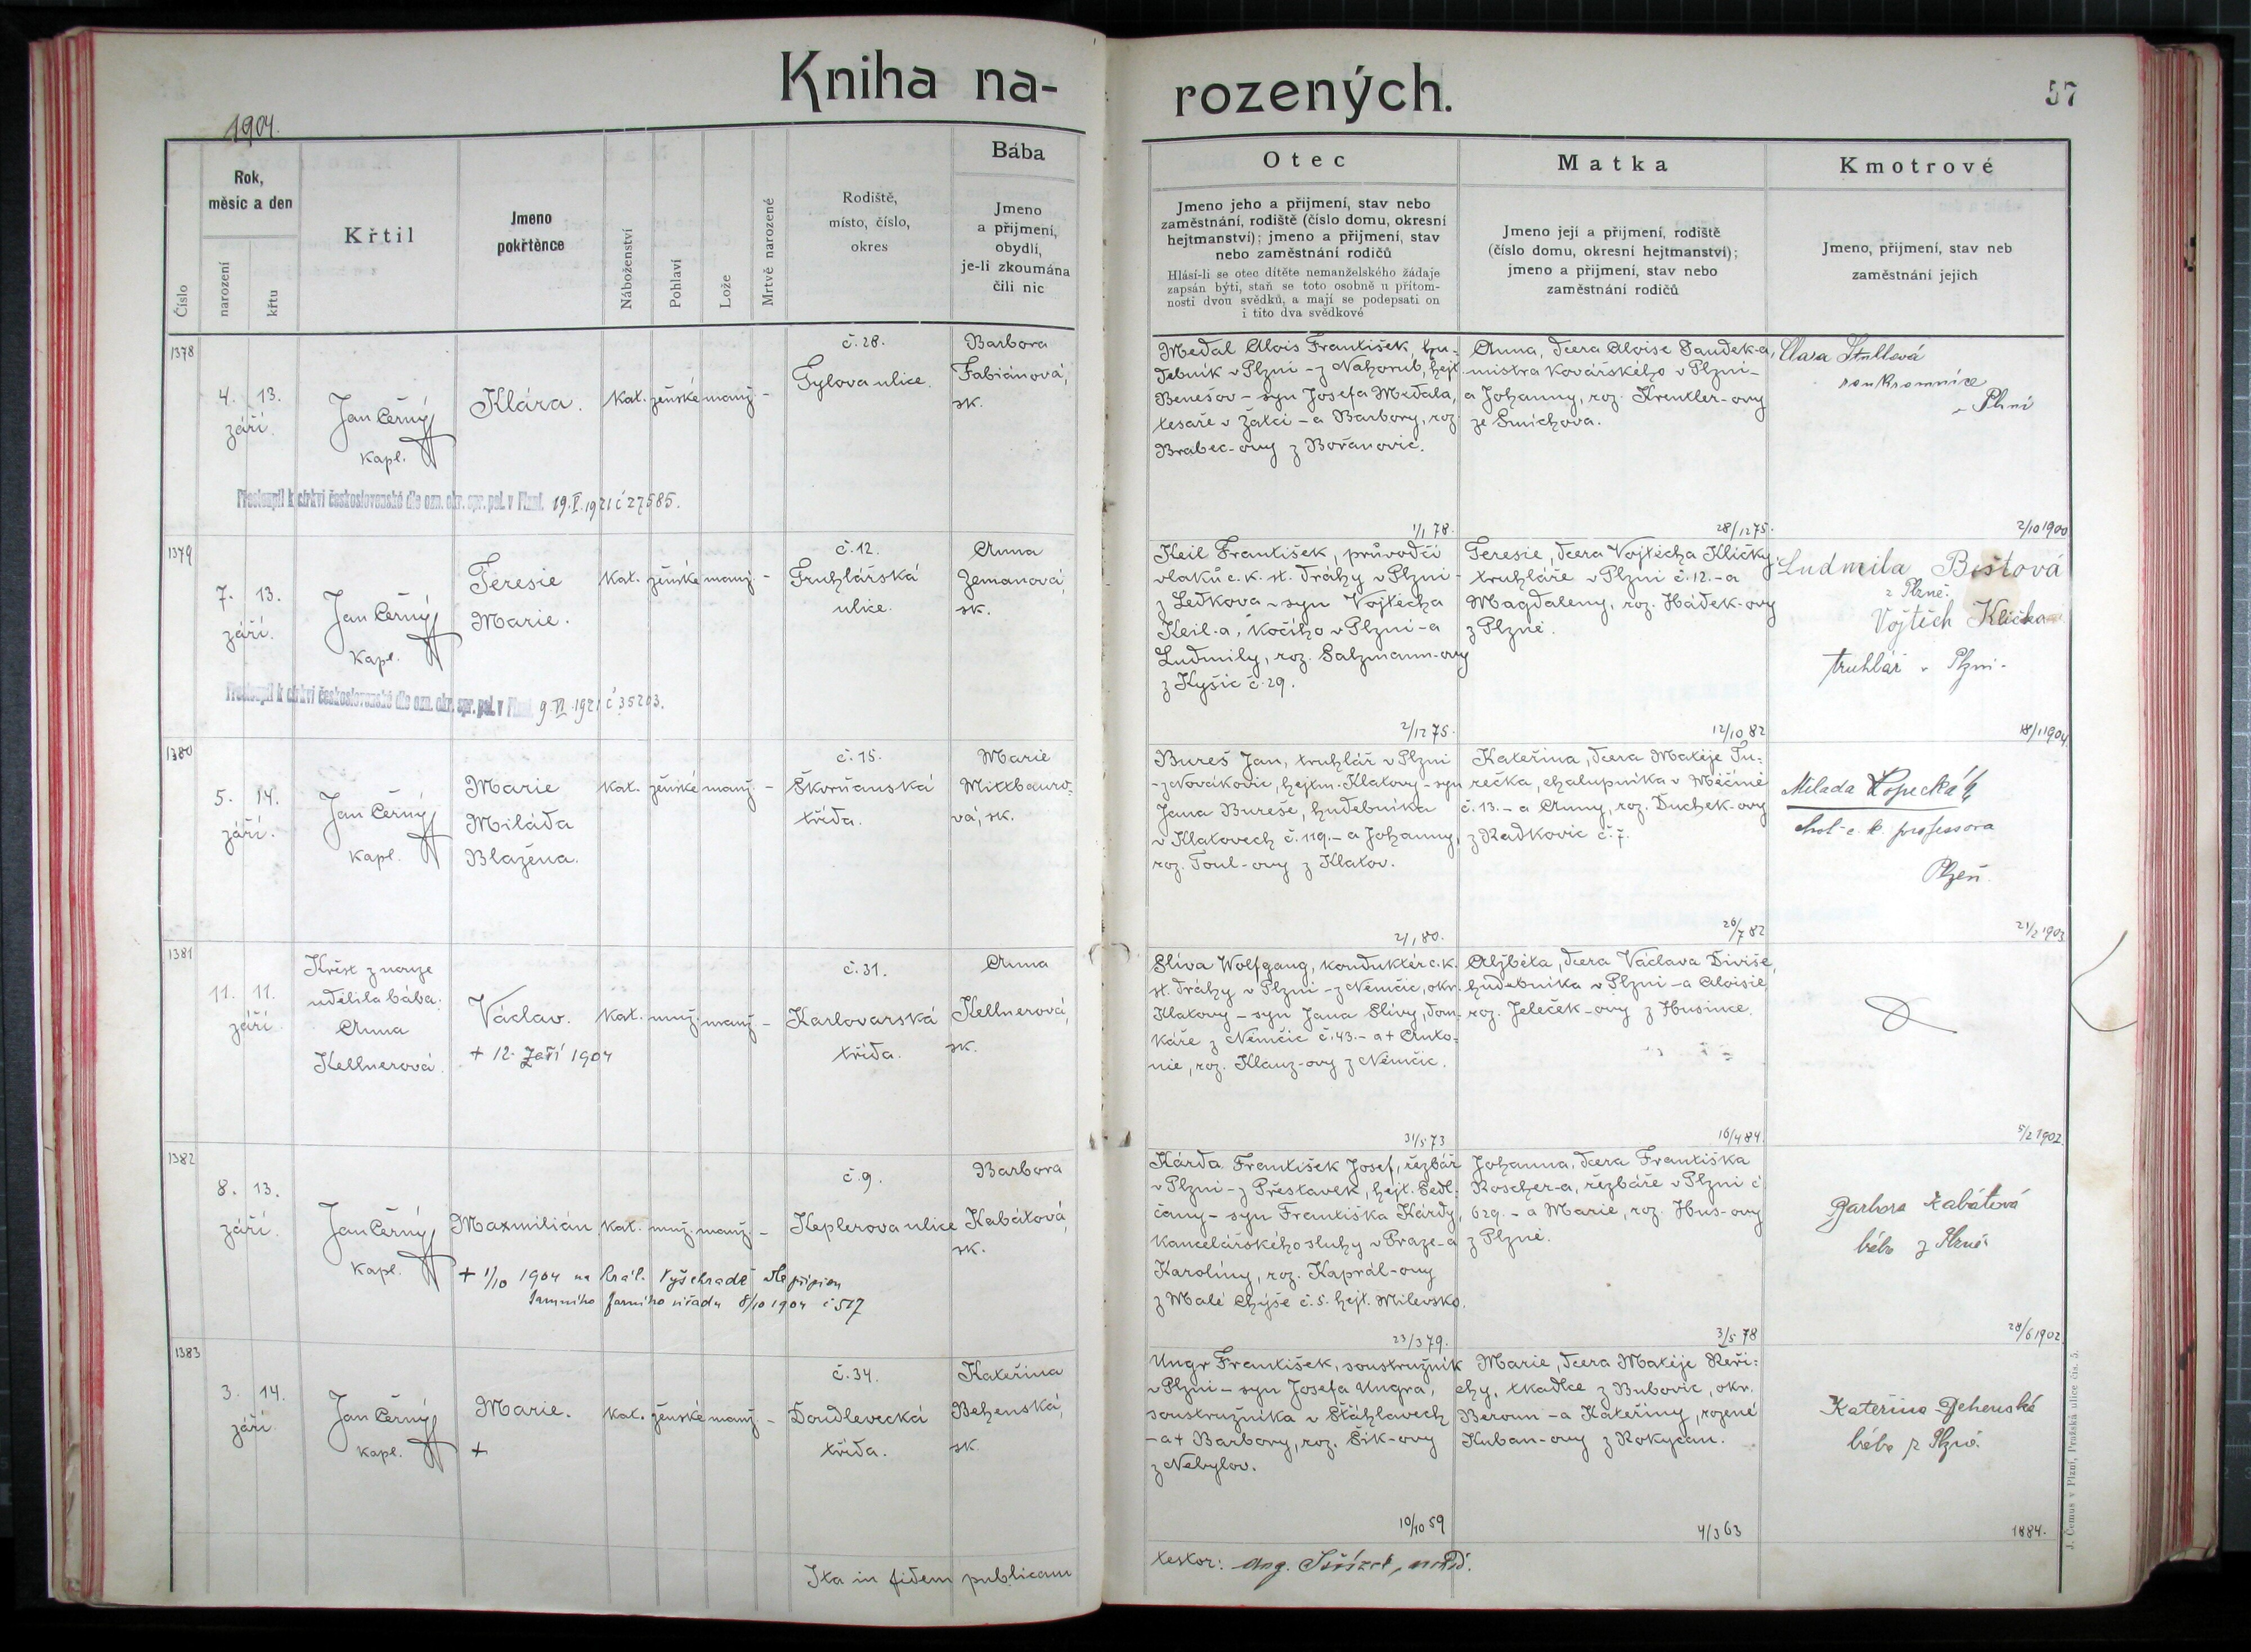 Kniha na-
rozených.
57
1904.
Číslo
Rok,
měsíc a den
narození
křtu
Křtil
Jmeno
pokřtěnce
Náboženství
Pohlaví
Lože
Mrtvě narozené
Rodiště,
místo, číslo,
okres
Bába
Jmeno
a přijmení,
obydlí,
je-li zkoumána
čili nic
Otec
Jmeno jeho a přijmení, stav nebo
zaměstnání, rodiště (číslo domu, okresní
hejtmanství); jmeno a přijmení, stav
nebo zaměstnání rodičů
Hlásí-li se otec dítěte nemanželského žádaje
zapsán býti, staň se toto osobně u přítom-
nosti dvou svědků, a mají se podepsati on
i tito dva svědkové
Matka
Jmeno její a přijmení, rodiště
(číslo domu, okresní hejtmanství);
jmeno a přijmení, stav nebo
zaměstnání rodičů
Kmotrové
Jmeno, přijmení, stav neb
zaměstnání jejich
1378
4. 13.
září.
Jan Černý
kapl.
Klára.
kat. ženské manž. -
č. 28.
Tylova ulice.
Barbora
Fabiánová,
sk.
Přestoupil k církvi československé dle ozn. okr. spr. pol. v Plzni. 19.V.1921 č 27585.
Medal Alois František, hu-
debník v Plzni - z Nahorub, hejt.
Benešov - syn Josefa Medala,
tesaře v Žatci - a Barbory, roz.
Brabec-ovy z Bořanovic.
1/1 78.
Anna, dcera Aloise Saudek-a,
mistra kovářského v Plzni -
a Johanny, roz. Krentler-ovy
ze Smíchova.
28/12 75.
Clara
soukromnice
v Plzni
2/10 1900
1379
7. 13.
září.
Jan Černý
kapl.
Teresie
Marie.
kat. ženské manž. -
č. 12.
Truhlářská
ulice.
Anna
Zemanová,
sk.
Přestoupil k církvi československé dle ozn. okr. spr. pol. v Plzni 9.VI.1921 č 35203.
Keil František, průvodčí
vlaků c. k. st. dráhy v Plzni -
z Ledkova - syn Vojtěcha
Keil-a, kočího v Plzni - a
Ludmily, roz. Salzmann-ovy
z Kyšic č. 29.
2/12 75.
Teresie, dcera Vojtěcha Kličky,
truhláře v Plzni č. 12. - a
Magdaleny, roz. Hádek-ovy
z Plzně.
12/10 82
Ludmila Beštová
z Plzně.
Vojtěch Klička
truhlář v Plzni.
18/1 1904
1380
5. 14.
září.
Jan Černý
kapl.
Marie
Miláda
Blažena.
kat. ženské manž. -
č. 15.
Škvrňanská
třída.
Marie
Mittbauro-
vá, sk.
Bureš Jan, truhlář v Plzni
- z Novákovic, hejtm. Klatovy - syn
Jana Bureše, hudebníka
v Klatovech č. 119. - a Johanny,
roz. Toul-ovy z Klatov.
2/1 80.
Kateřina, dcera Matěje Tu-
rečka, chalupníka v Měčíně
č. 13. - a Anny, roz. Duchek-ovy
z Radkovic č. 7.
26/7 82
Milada Kopecká
choť c. k. professora
Plzeň.
21/2 1903
1381
11. 11.
září.
Křest z nouze
udělila bába:
Anna
Kellnerová.
Václav.
+ 12. září 1904
kat. muž. manž. -
č. 31.
Karlovarská
třída.
Anna
Kellnerová,
sk.
Slíva Wolfgang, konduktér c. k.
st. dráhy v Plzni - z Němčic, okr.
Klatovy - syn Jana Slívy, dom-
káře z Němčic č. 43. - a + Anto-
nie, roz. Klauz-ovy z Němčic.
31/5 73
Alžběta, dcera Václava Diviše,
hudebníka v Plzni - a Aloisie,
roz. Jeleček-ovy z Husince.
16/4 84.
5/2 1902.
1382
8. 13.
září.
Jan Černý
kapl.
Maxmilián.
kat. muž. manž. -
+ 1/10 1904 na Král. Vyšehradě dle přípisu
farního úřadu 8/10 1904 č 517
č. 9.
Keplerova ulice
Barbora
Kabátová,
sk.
Kárda František Josef, řezbář
v Plzni - z Přestavlk, hejt. Sedl-
čany - syn Františka Kárdy,
kancelářského sluhy v Praze - a
Karolíny, roz. Kaprál-ovy
z Malé Chýše č. 5. hejt. Milevsko.
23/3 79.
Johanna, dcera Františka
Roscher-a, řezbáře v Plzni č
629. - a Marie, roz. Hus-ovy
z Plzně.
3/5 78
Barbora Kabátová
bába z Plzně
28/6 1902.
1383
3. 14.
září
Jan Černý
kapl.
Marie.
+
kat. ženské manž. -
č. 34.
Doudlevecká
třída.
Kateřina
Behenská,
sk.
Ungr František, soustružník
v Plzni - syn Josefa Ungra,
soustružníka v Šťáhlavech
- a + Barbory, roz. Šik-ovy
z Nebylov.
10/10 59
Marie, dcera Matěje Reři-
chy, tkadlce z Bubovic, okr.
Beroun - a Kateřiny, rozené
Kuban-ovy z Rokycan.
4/3 63
Kateřina Behenská
bába z Plzně.
1884.
Ita in fidem publicam
testor:
J. Čemus v Plzni, Pražská ulice čís. 5.